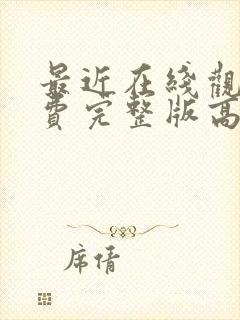 最近在线觀
費完整版高
席倩